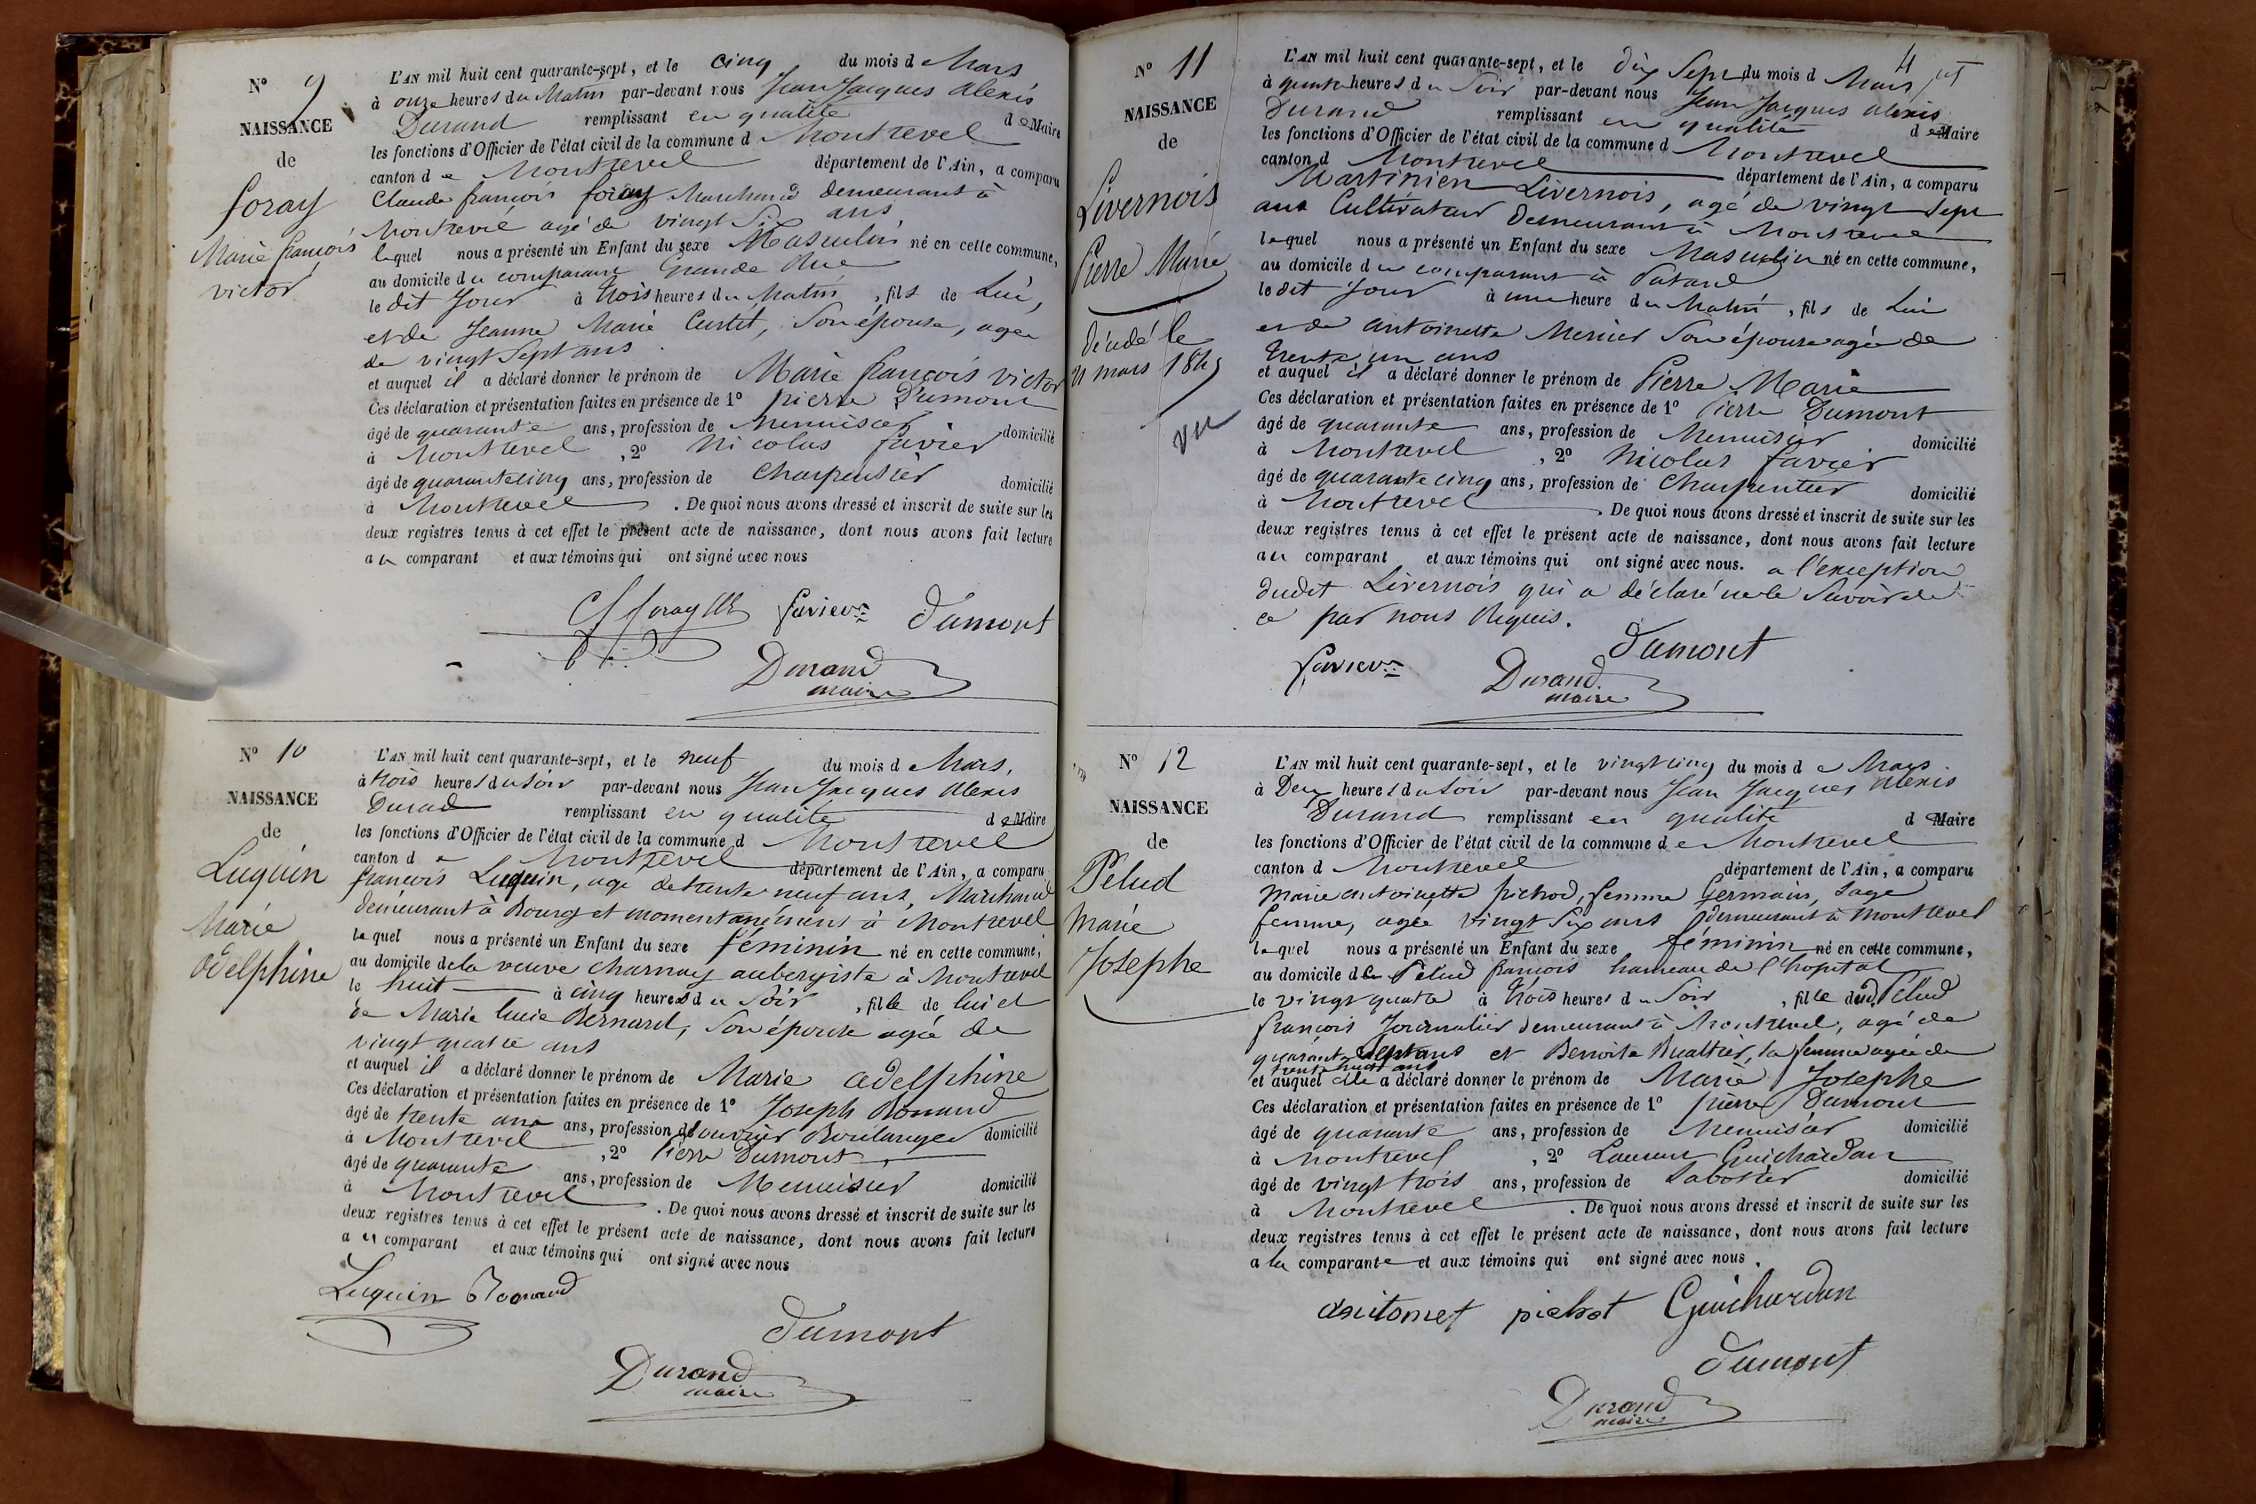 N° 9
NAISSANCE
de
foray
Marie françois
victor
L'AN mil huit cent quarante-sept, et le cinq du mois de Mars
à onze heures du Matin par-devant nous Jean Jacques Alexis
Durand remplissant en qualité de Maire
les fonctions d'Officier de l'état civil de la commune d Montrevel
canton de Montrevel département de l'Ain, a comparu
Claude françois foray Marchand demeurant à
Montrevel agé de vingt Six ans
lequel nous a présenté un Enfant du sexe Masculin né en cette commune,
au domicile du comparant Grande Rue
le dit Jour à trois heures du Matin, fils de Lui,
et de Jeanne Marie Curtet, Son épouse, agée
de vingt Sept ans
et auquel il a déclaré donner le prénom de Marie françois victor
Ces déclaration et présentation faites en présence de 1° pierre Dumont
âgé de quarante ans, profession de Menuisier domicilié
à Montrevel, 2° Nicolas favier
âgé de quarante cinq ans, profession de Charpentier domicilié
à Montrevel. De quoi nous avons dressé et inscrit de suite sur les
deux registres tenus à cet effet le présent acte de naissance, dont nous avons fait lecture
au comparant et aux témoins qui ont signé avec nous
favier Dumont
Durand
maire
N° 10
NAISSANCE
de
Luquin
Marie
adelphine
L'AN mil huit cent quarante-sept, et le neuf du mois d Mars,
à trois heures du Soir par-devant nous Jean Jacques Alexis
Durand remplissant en qualité de Maire
les fonctions d'Officier de l'état civil de la commune d Montrevel
canton de Montrevel département de l'Ain, a comparu
françois Luquin, agé de trente neuf ans, Marchand
demeurant à Bourg et momentanément à Montrevel
lequel nous a présenté un Enfant du sexe féminin né en cette commune,
au domicile de la veuve Charnay aubergiste à Montrevel
le huit à cinq heures du Soir, fille de lui et
de Marie Lucie Bernard, Son épouse agée de
vingt quatre ans
et auquel il a déclaré donner le prénom de Marie adelphine
Ces déclaration et présentation faites en présence de 1° Joseph Bonnand
âgé de trente ans ans, profession d'ouvrier Boulanger domicilié
à Montrevel, 2° Pierre Dumont
âgé de quarante ans, profession de Menuisier domicilié
à Montrevel. De quoi nous avons dressé et inscrit de suite sur les
deux registres tenus à cet effet le présent acte de naissance, dont nous avons fait lecture
au comparant et aux témoins qui ont signé avec nous
Luquin
Dumont
Durand
maire
N° 11
NAISSANCE
de
Livernois
Pierre Marie
décédé le
21 mars 184
vu
4
L'AN mil huit cent quarante-sept, et le dix Sept du mois d Mars
à quatre heures du Soir par-devant nous Jean Jacques Alexis
Durand remplissant en qualité de Maire
les fonctions d'Officier de l'état civil de la commune d Montrevel
canton d Montrevel département de l'Ain, a comparu
Martinien Livernois, agé de vingt Sept
ans Cultivateur demeurant à Montrevel
lequel nous a présenté un Enfant du sexe Masculin né en cette commune,
au domicile du comparant à
le dit Jour à une heure du Matin, fils de Lui
et de antoinette Mercier Son épouse agée de
trente un ans
et auquel il a déclaré donner le prénom de Pierre Marie
Ces déclaration et présentation faites en présence de 1° Pierre Dumont
âgé de quarante ans, profession de Menuisier domicilié
à Montrevel, 2° Nicolas favier
âgé de quarante cinq ans, profession de Charpentier domicilié
à Montrevel. De quoi nous avons dressé et inscrit de suite sur les
deux registres tenus à cet effet le présent acte de naissance, dont nous avons fait lecture
au comparant et aux témoins qui ont signé avec nous. a l'exception
dudit Livernois qui a déclaré ne le Savoir de
ce par nous Requis.
Dumont
favier
Durand
maire
N° 12
NAISSANCE
de
Pelud
marie
Josephe
L'AN mil huit cent quarante-sept, et le vingt cinq du mois de Mars
à Deux heures du Soir par-devant nous Jean Jacques Alexis
Durand remplissant en qualité d Maire
les fonctions d'Officier de l'état civil de la commune de Montrevel
canton d Montrevel département de l'Ain, a comparu
Marie antoinette pichod, femme Germain, Sage
femme, agée vingt Six ans demeurant à Montrevel
lequel nous a présenté un Enfant du sexe féminin né en cette commune,
au domicile de Pelud françois hameau de l'hopital
le vingt quatre à trois heures du Soir, fille dud. Pelud
françois Journalier demeurant à Montrevel, agé de
quarante Sept ans et Benoite Bualtier, la femme agée de
trente huit ans
et auquel elle a déclaré donner le prénom de Marie Josephe
Ces déclaration et présentation faites en présence de 1° pierre Dumont
âgé de quarante ans, profession de Menuisier domicilié
à Montrevel, 2° Laurent Guichardan
âgé de vingt trois ans, profession de Sabotier domicilié
à Montrevel. De quoi nous avons dressé et inscrit de suite sur les
deux registres tenus à cet effet le présent acte de naissance, dont nous avons fait lecture
a la comparante et aux témoins qui ont signé avec nous.
Guichardan
Dumont
Durand
maire